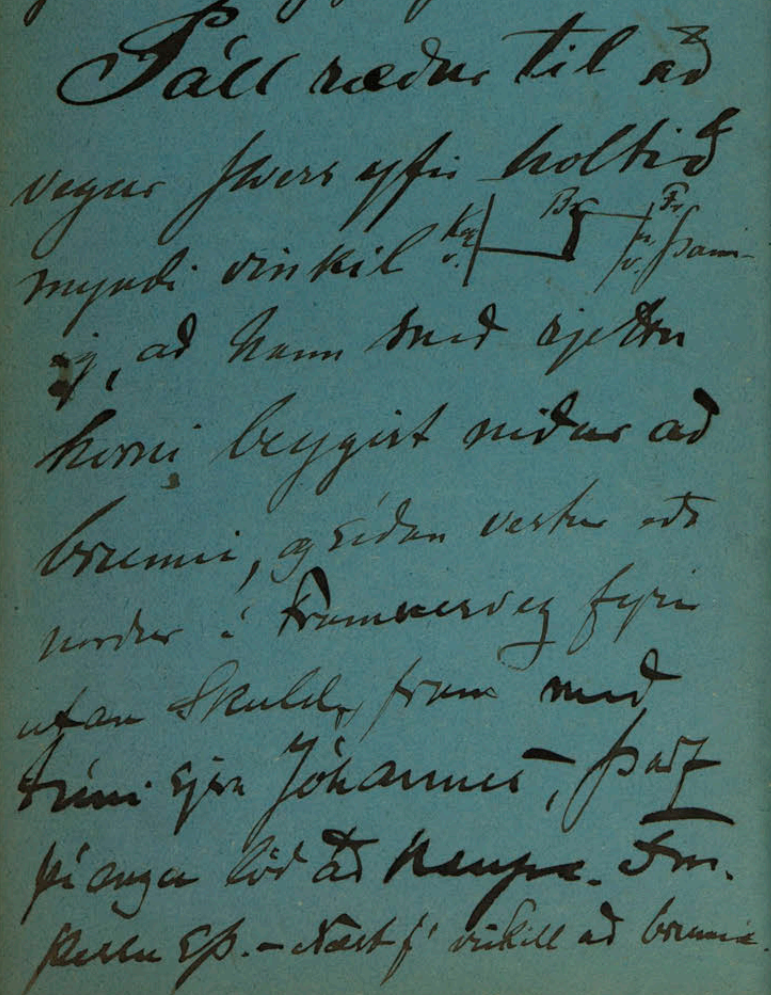 Páll ræður til að
vegur þvers yfir holtið
myndi vinkil Kv. Br Fr þann-
ig, að hann með rjettu
horni beygist niður að
brunni, og síðan vestur eða
norður í Framnesveg fyrir
utan Skuld, fram með
túni sjera Jóhannes, Þarf
þí anga lóð að kaupa.
SÞ. – Næst f' vinkill að brunni.